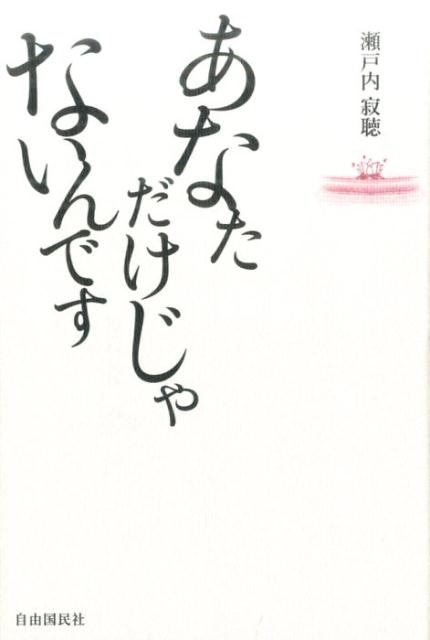 瀬戸内 寂聴
あなた
だけじゃ
ないんです
自由国民社